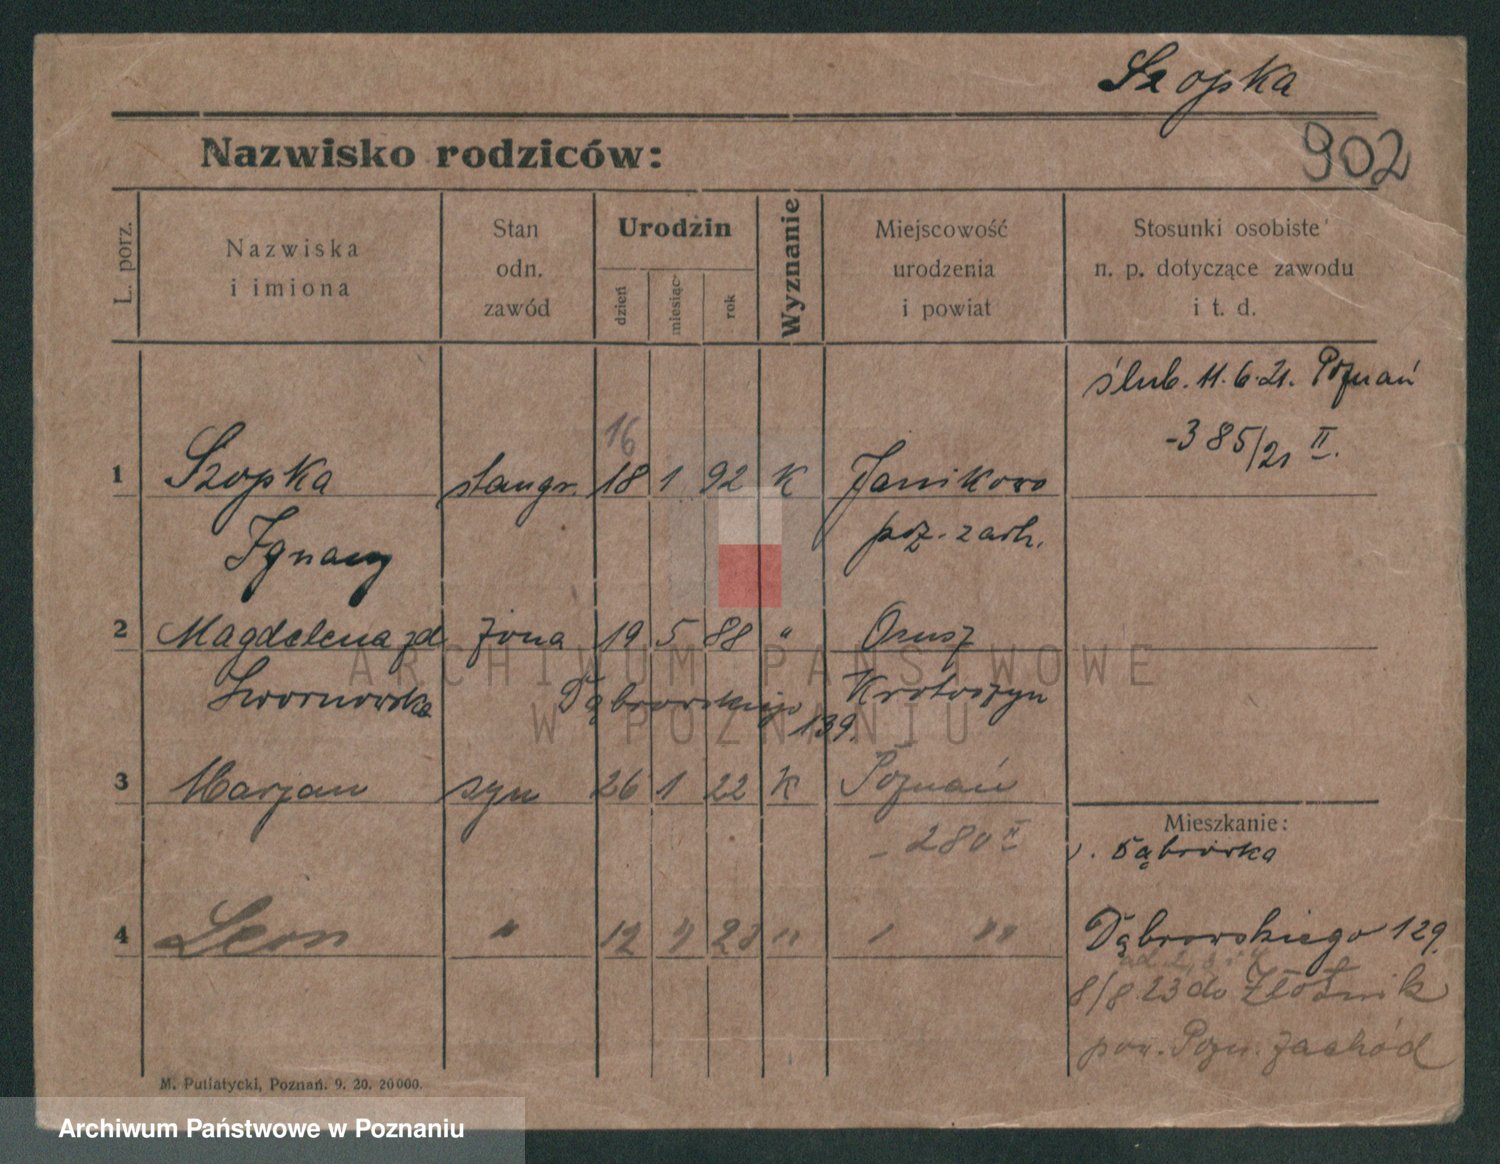 Szopka
902
Nazwisko rodziców:
L. porz.
Nazwiska
i imiona
Stan
odn.
zawód
Urodzin
dzień
miesiąc
rok
Wyznanie
Miejscowość
urodzenia
i powiat
Stosunki osobiste
n. p. dotyczące zawodu
i t. d.
ślub. 11. 6. 21. Poznań
-385/21 II.
16
1 Szopka stangr. 18 1 92 K Janikowo
Ignacy poz. zach.
2 Magdelena zd żona 19 5 88 "
Krotoszyn
Dąbrowskiego
139.
3 Marjan syn 26 1 22 K Poznań
- 280 II
Mieszkanie:
Dąbrówka
4 Leon " 12 7 23 " " "
Dąbrowskiego 129.
8/8 23 do Złotnik
pow. Pozn. Zachód
M. Putiatycki, Poznań. 9. 20. 20000.
ARCHIWUM PAŃSTWOWE
W POZNANIU
Archiwum Państwowe w Poznaniu